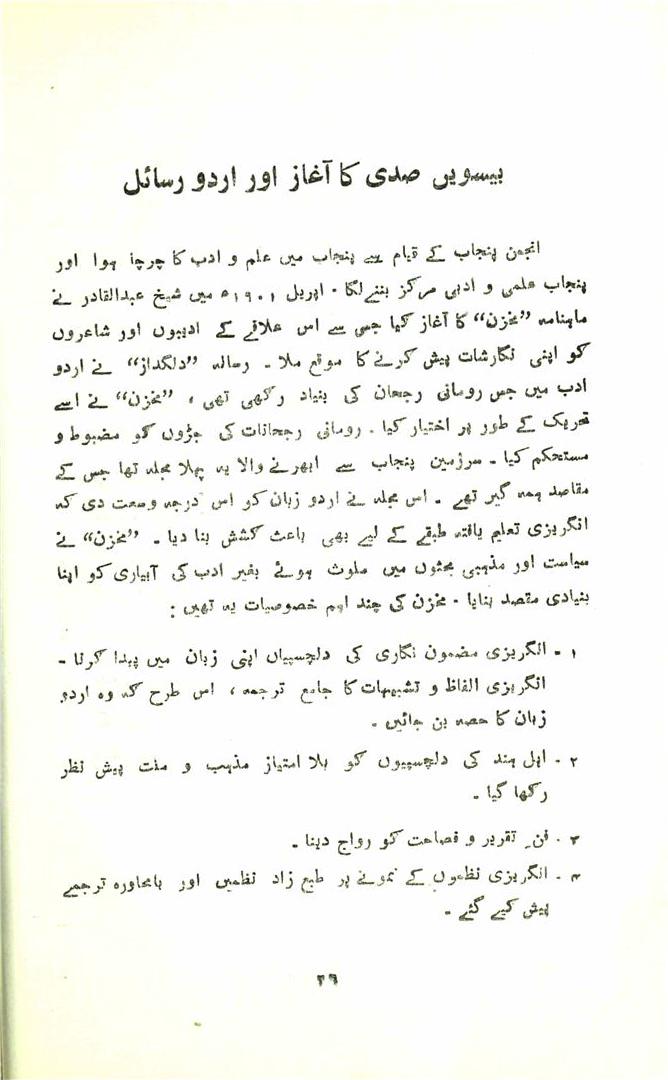 بیسویں صدی کا آغاز اور اردو رسائل
انجمن پنجاب کے قیام سے پنجاب میں علم و ادب کا چرچا ہوا اور
پنجاب علمی و ادبی مرکز بننے لگا - اپریل ۱۹۰۱ء میں شیخ عبدالقادر نے
ماہنامہ ”مخزن“ کا آغاز کیا جس سے اس علاقے کے ادیبوں اور شاعروں
کو اپنی نگارشات پیش کرنے کا موقع ملا - رسالہ ”دلگداز“ نے اردو
ادب میں جس رومانی رجحان کی بنیاد رکھی تھی ، ”مخزن“ نے اسے
تحریک کے طور پر اختیار کیا - رومانی رجحانات کی جڑوں کو مضبوط و
مستحکم کیا - سرزمین پنجاب سے ابھرنے والا یہ پہلا مجلہ تھا جس کے
مقاصد ہمہ گیر تھے - اس مجلہ نے اردو زبان کو اس درجہ وسعت دی کہ
انگریزی تعلیم یافتہ طبقے کے لیے بھی باعث کشش بنا دیا - ”مخزن“ نے
سیاست اور مذہبی بحثوں میں ملوث ہوئے بغیر ادب کی آبیاری کو اپنا
بنیادی مقصد بنایا - مخزن کی چند اہم خصوصیات یہ تھیں :
۱ - انگریزی مضمون نگاری کی دلچسپیاں اپنی زبان میں پیدا کرنا -
انگریزی الفاظ و تشبیہات کا جامع ترجمہ ، اس طرح کہ وہ اردو
زبان کا حصہ بن جائیں -
۲ - اہل ہند کی دلچسپیوں کو بلا امتیاز مذہب و ملت پیش نظر
رکھا گیا -
۳ - فن تقریر و فصاحت کو رواج دینا -
۴ - انگریزی نظموں کے نمونے پر طبع زاد نظمیں اور بامحاورہ ترجمے
پیش کیے گئے -
۲۶